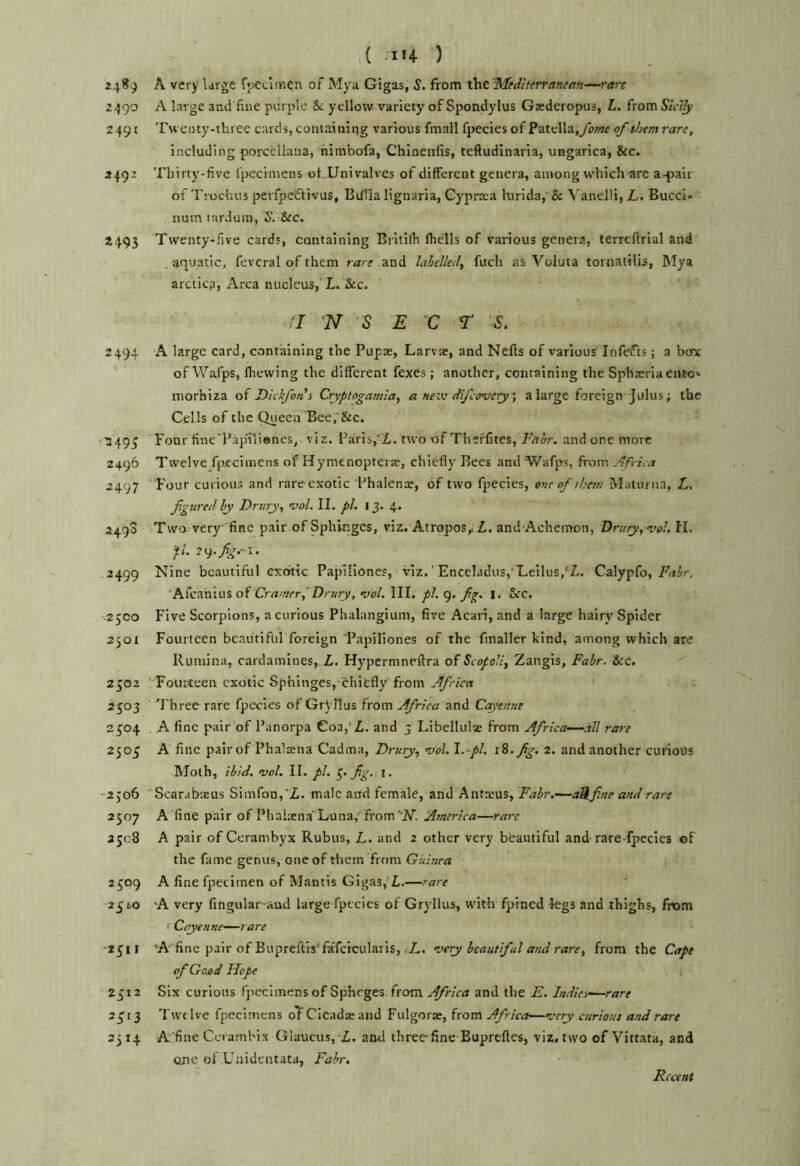 ( 114 )
2489 A very large ſpecimen of Mya Gigas, S. from the Mediterranean—rare
2490 A large and fine purple & yellow variety of Spondylus Gæderopus, L. from Sicily
2491 Twenty-three cards, containing various ſmall ſpecies of Patella, ſome of them rare,
including porcellana, nimboſa, Chinenſis, teſtudinaria, ungarica, &c.
2492 Thirty-five ſpecimens of Univalves of different genera, among which are a pair
of Trochus perſpectivus, Bulla lignaria, Cypræa lurida, & Vanelli, L. Bucci-
num tardum, S. &c.
2493 Twenty-five cards, containing Britiſh ſhells of various genera, terreſtrial and
aquatic, ſeveral of them rare and labelled, ſuch as Voluta tornatilis, Mya
arctica, Arca nucleus, L. &c.
I N S E C T S.
2494 A large card, containing the Pupæ, Larvæ, and Neſts of various Inſects; a box
of Waſps, ſhewing the different ſexes; another, containing the Sphæria ento-
morhiza of Dickſon's Cryptogamia, a new diſcovery; a large foreign Julus; the
Cells of the Queen Bee, &c.
2495 Four fine Papiliones, viz. Paris, L. two of Therſites, Fabr. and one more
2496 Twelve ſpecimens of Hymenopteræ, chiefly Bees and Waſps, from Africa
2497 Four curious and rare exotic Phalenæ, of two ſpecies, one of them Maturna, L.
figured by Drury, vol. II. pl. 13. 4.
2498 Two very fine pair of Sphinges, viz. Atropos, L. and Achemon, Drury, vol. II.
pl. 29. fig. 1.
2499 Nine beautiful exotic Papiliones, viz. Enceladus, Leilus, L. Calypſo, Fabr.
Aſcanius of Cramer, Drury, vol. III. pl. 9. fig. 1. &c.
2500 Five Scorpions, a curious Phalangium, five Acari, and a large hairy Spider
2501 Fourteen beautiful foreign Papiliones of the ſmaller kind, among which are
Rumina, cardamines, L. Hypermneſtra of Scopoli, Zangis, Fabr. &c.
2502 Fourteen exotic Sphinges, chiefly from Africa
2503 Three rare ſpecies of Gryllus from Africa and Cayenne
2504 A fine pair of Panorpa Coa, L. and 3 Libellulæ from Africa—all rare
2505 A fine pair of Phalæna Cadma, Drury, vol. I. pl. 18. fig. 2. and another curious
Moth, ibid. vol. II. pl. 5. fig. 1.
2506 Scarabæus Simſon, L. male and female, and Antæus, Fabr.—all fine and rare
2507 A fine pair of Phalæna Luna, from N. America—rare
2508 A pair of Cerambyx Rubus, L. and 2 other very beautiful and rare ſpecies of
the ſame genus, one of them from Guinea
2509 A fine ſpecimen of Mantis Gigas, L.—rare
2510 A very ſingular and large ſpecies of Gryllus, with ſpined legs and thighs, from
Cayenne—rare
2511 A fine pair of Bupreſtis faſcicularis, L. very beautiful and rare, from the Cape
of Good Hope
2512 Six curious ſpecimens of Spheges from Africa and the E. Indies—rare
2513 Twelve ſpecimens of Cicadæ and Fulgoræ, from Africa—very curious and rare
2514 A fine Cerambix Glaucus, L. and three fine Bupreſtes, viz. two of Vittata, and
one of Unidentata, Fabr.
Recent